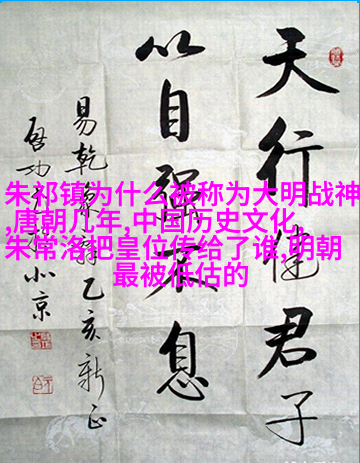 天行健君子
以自強不息
易乾象辞乙亥新正
啟功
朱祁镇为什么被称为大明战神
,唐朝几年,中国历史文化,
朱常洛把皇位传给了谁,明朝
最被低估的